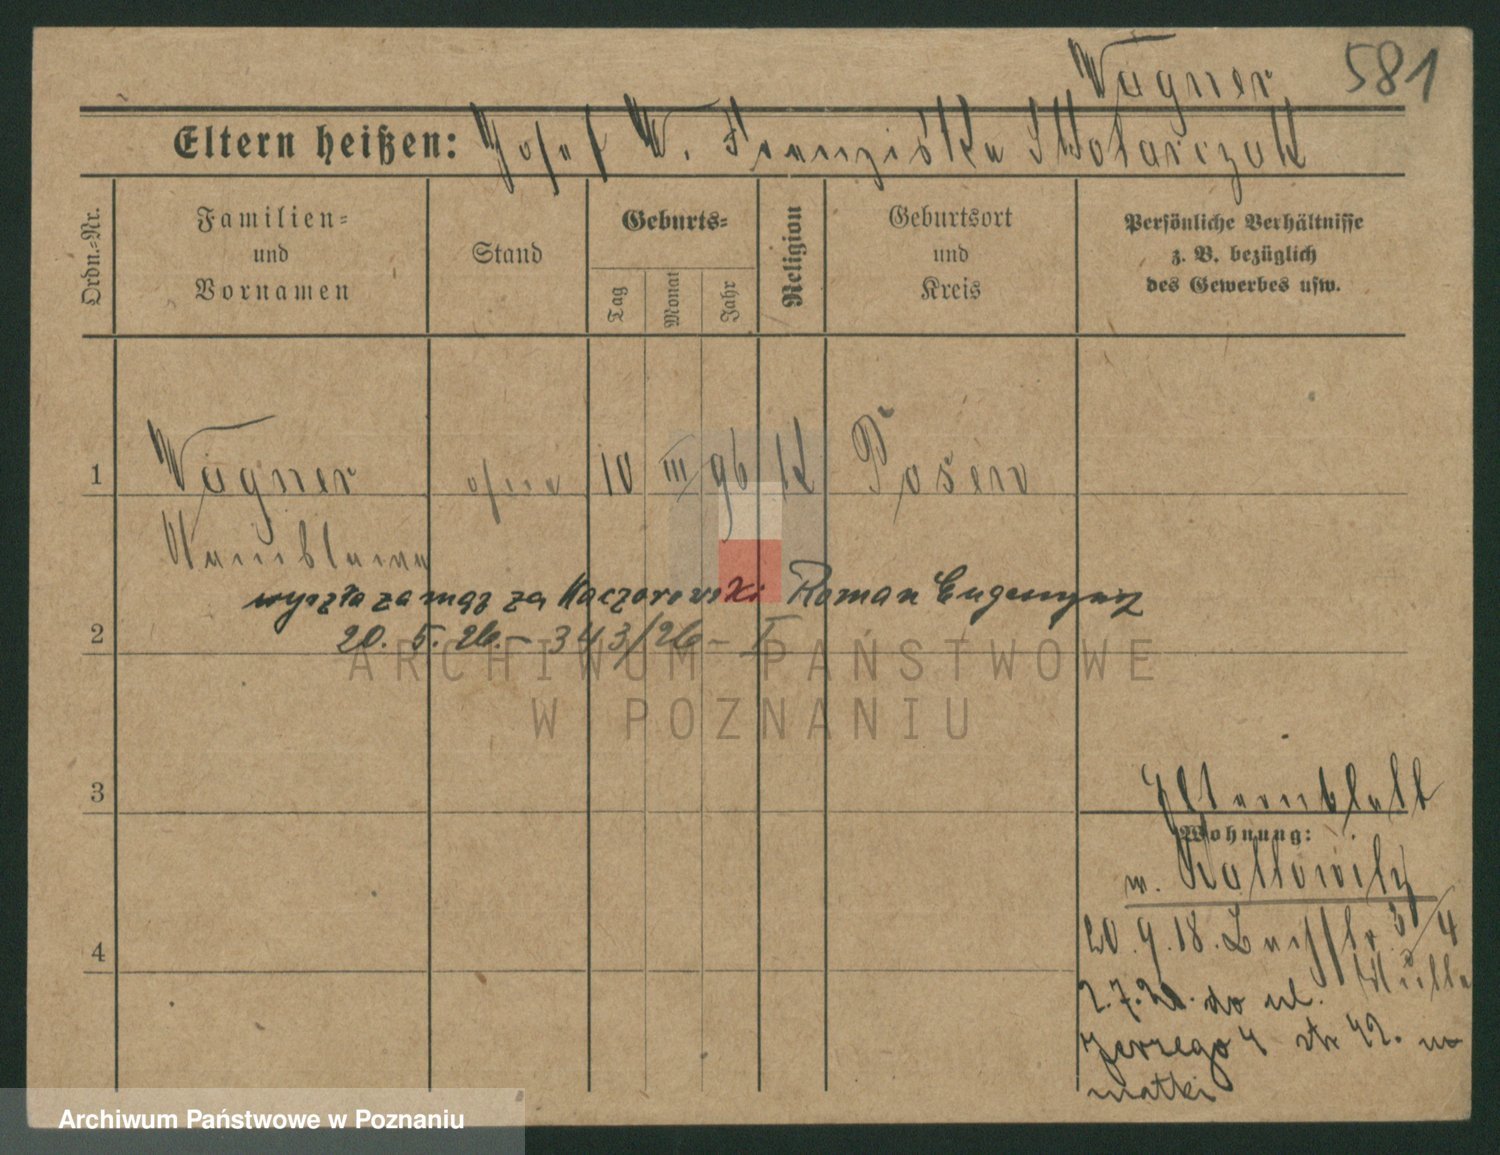 Wagner 581
Eltern heißen: Josef W. Franziska Skotarczak
Ordn.=Nr.
Familien=
und
Vornamen
Stand
Geburts=
Tag
Monat
Jahr
Religion
Geburtsort
und
Kreis
Persönliche Verhältnisse
z. B. bezüglich
des Gewerbes usw.
1 Wagner ohne 10 III 96 K Posen
wyszła za mąż za Kaczorowski Roman Eugenjusz
20. 5. 26. - 343/26 - I
2
ARCHIWUM PAŃSTWOWE
W POZNANIU
3
Elternblatt
Wohnung:
w. Kattowitz
20. 9. 18.
4
2.7.21. do ul.
Jerzego 4 42. m
matki
Archiwum Państwowe w Poznaniu